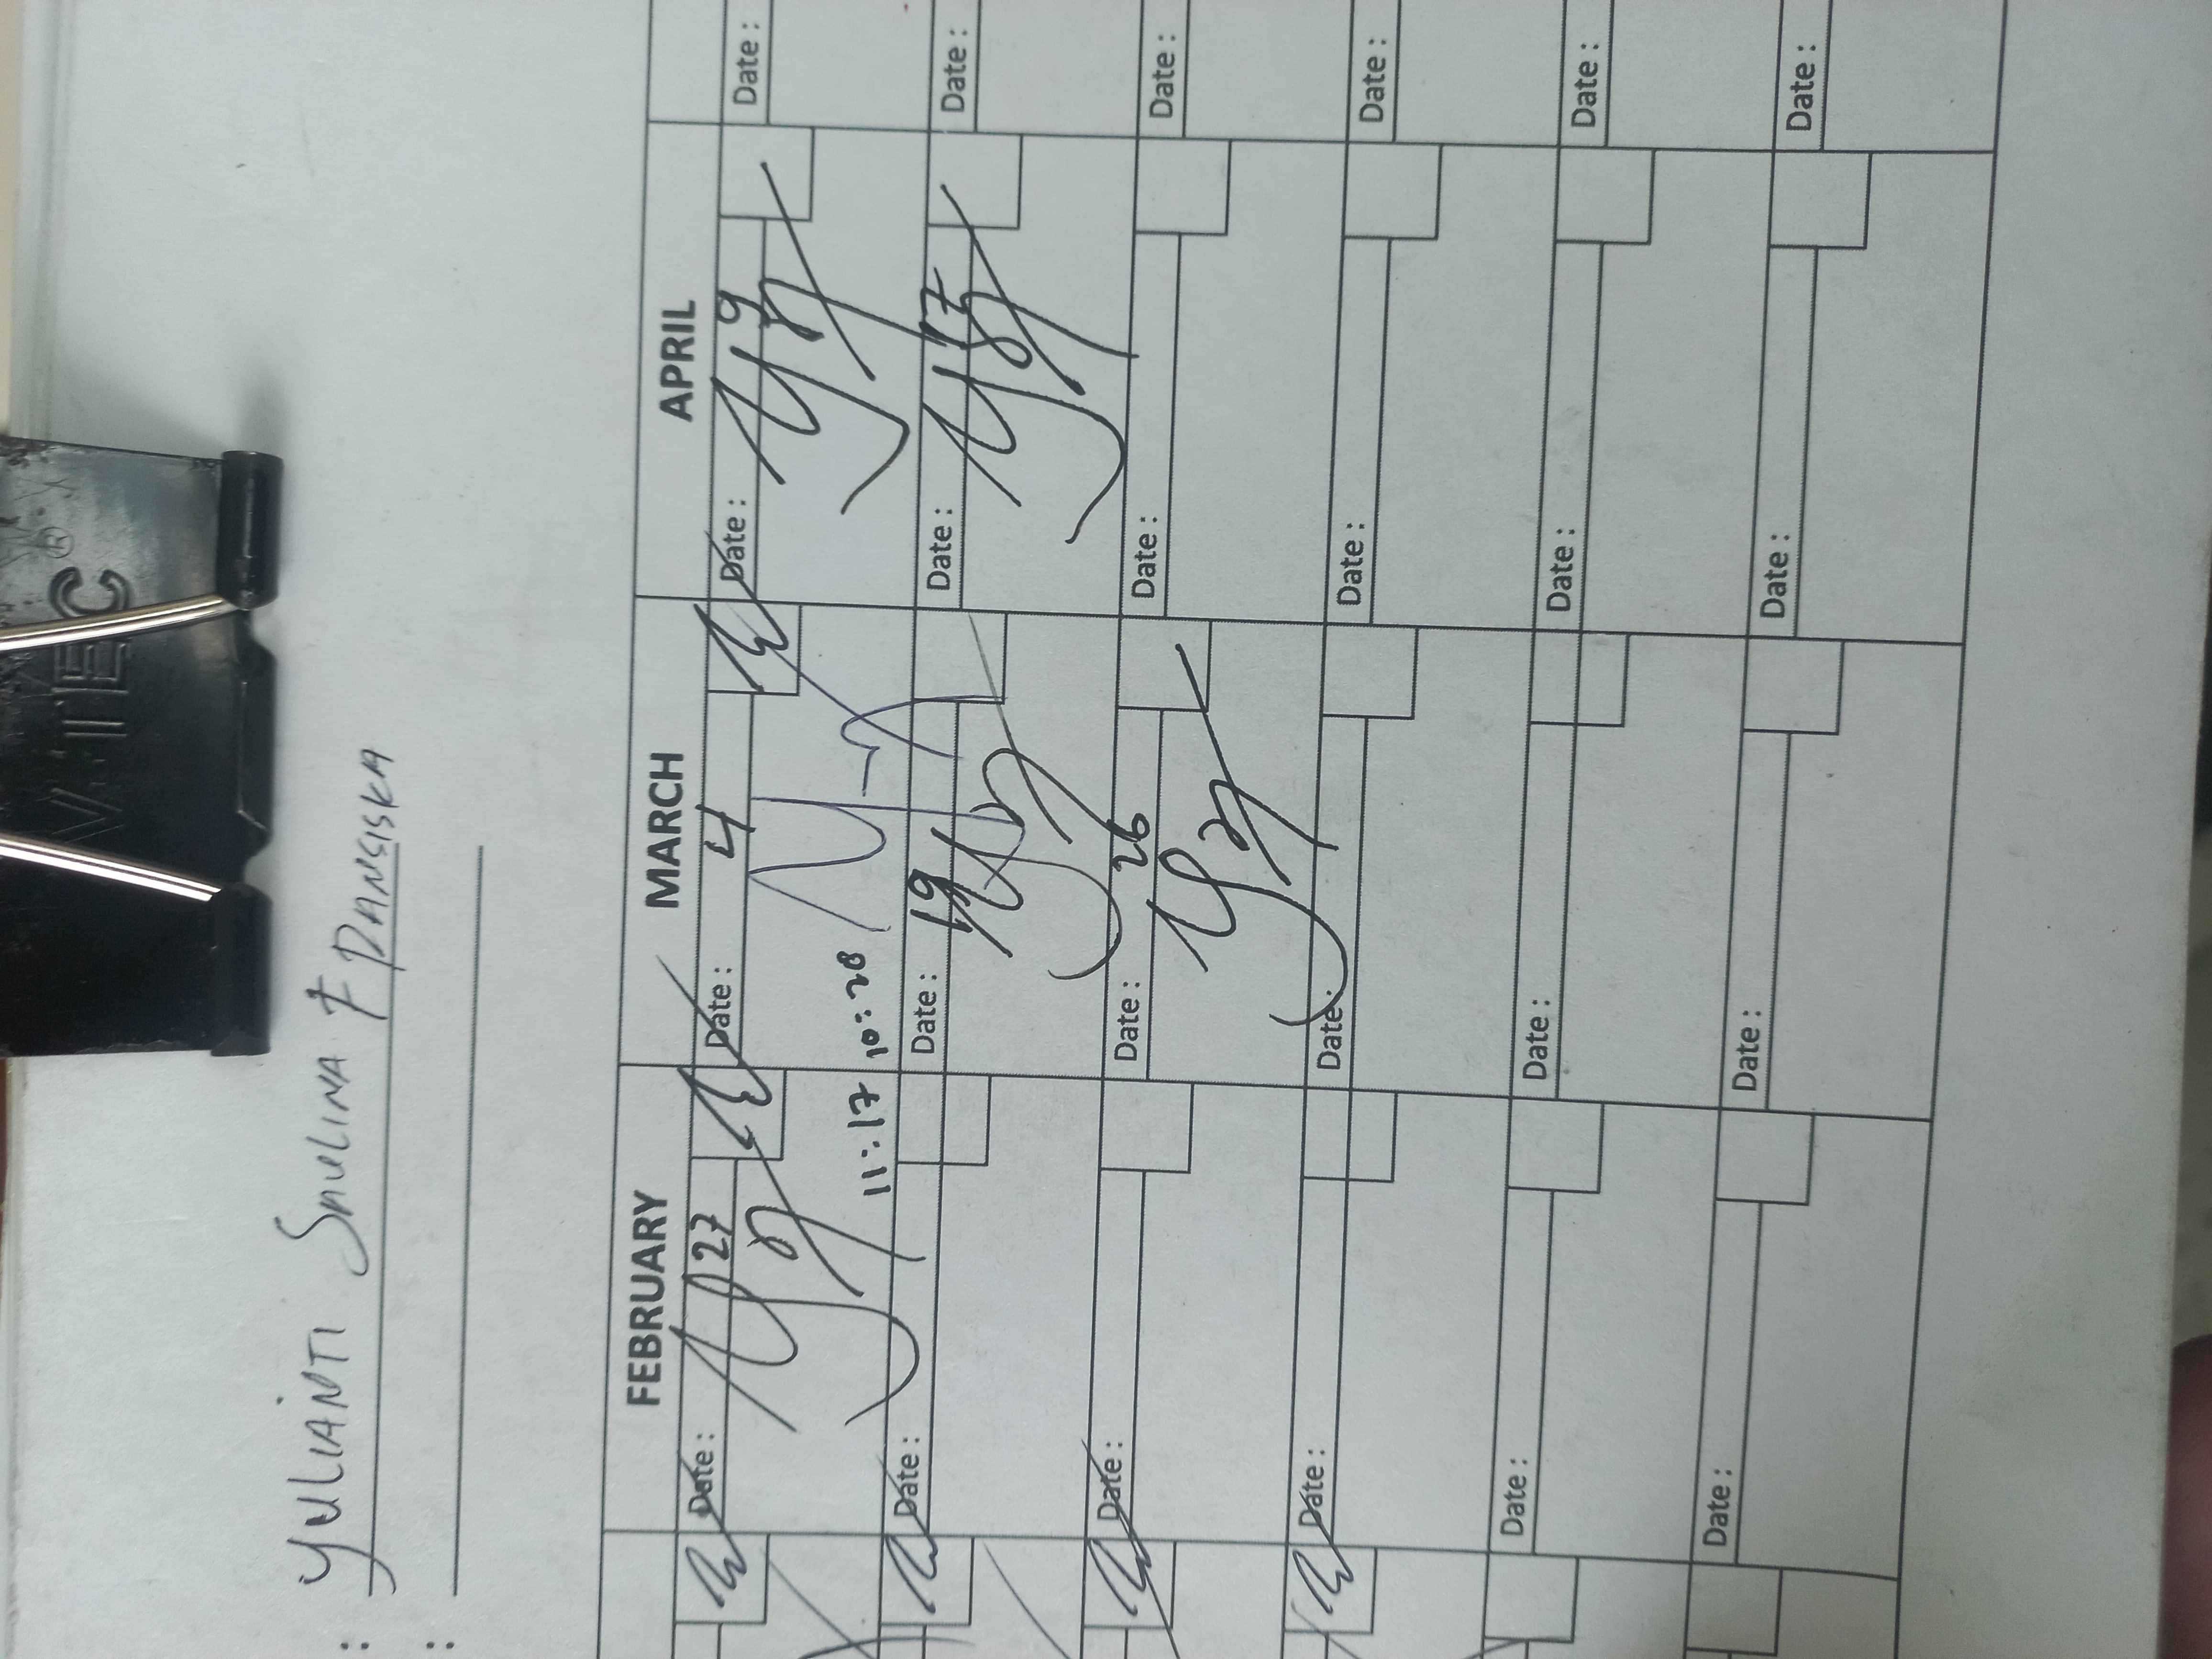 V-TEC ®
: YULIANTI SMULINA F DANSISKA
:
FEBRUARY MARCH APRIL
Date: 27 Date: 4 Date: 9 Date:
11:17 10:28
Date: Date: 19 Date: 17 Date:
Date: Date: 26 Date: Date:
Date: Date: Date: Date:
Date: Date: Date: Date:
Date: Date: Date: Date: